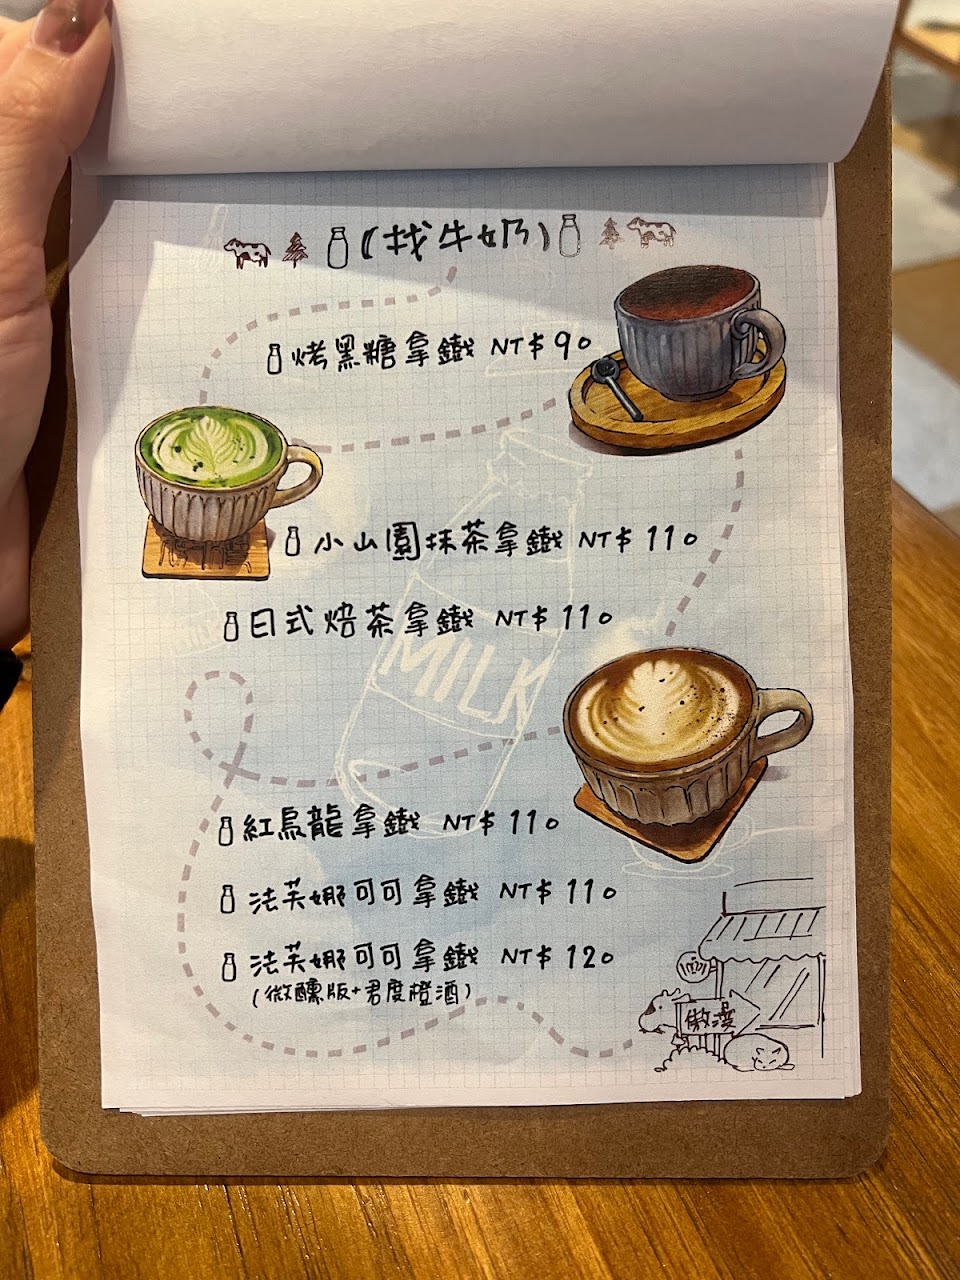 (找牛奶)
烤黑糖拿鐵 NT$90
小山園抹茶拿鐵 NT$110
日式焙茶拿鐵 NT$110
MILK
紅烏龍拿鐵 NT$110
法芙娜可可拿鐵 NT$110
法芙娜可可拿鐵 NT$120
(微醺版+君度橙酒)
傲漫